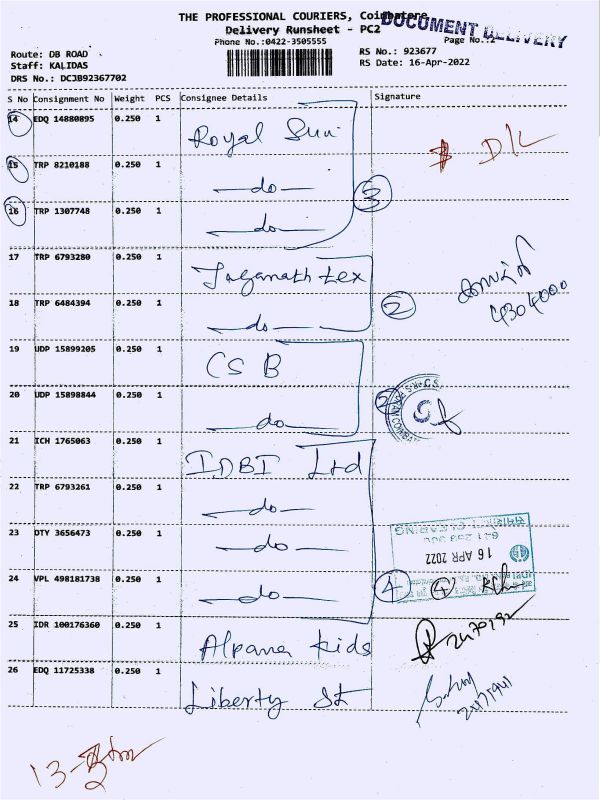 THE PROFESSIONAL COURIERS, Coimbatore
DOCUMENT DELIVERY
Delivery Runsheet - PC2
Phone No.:0422-3505555
Page No.:2
Route: DB ROAD
RS No.: 923677
Staff: KALIDAS
RS Date: 16-Apr-2022
DRS No.: DCJB92367702
S No Consignment No Weight PCS Consignee Details Signature
14 EDQ 14880895 0.250 1 Royal Sun
D/L
15 TRP 8210188 0.250 1 do
3
16 TRP 1307748 0.250 1 do
17 TRP 6793280 0.250 1 Jaganath tex
4304000
2
18 TRP 6484394 0.250 1 do
19 UDP 15899205 0.250 1 CSB
20 UDP 15898844 0.250 1 do
2
21 ICH 1765063 0.250 1 IDBI Ltd
22 TRP 6793261 0.250 1 do
23 DTY 3656473 0.250 1 do
16 APR 2022
24 VPL 498181738 0.250 1 do
4
4
25 IDR 100176360 0.250 1 Alpana kids
2470192
26 EDQ 11725338 0.250 1 Liberty St
13-